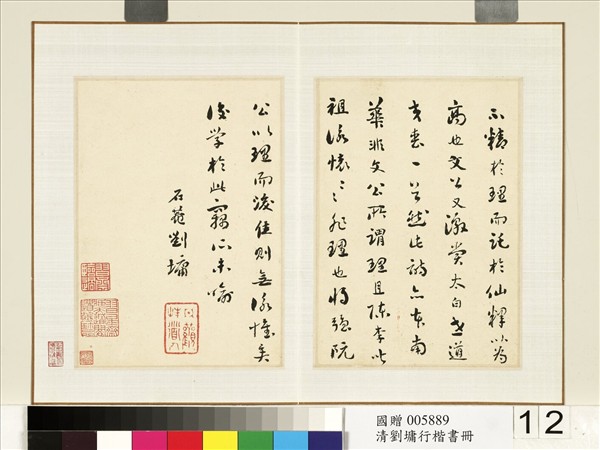 不精於理而託於仙釋以為
高也文公又激賞太白世道
交喪一首然此詩亦本南
華非文公所謂理且陳李
祖詠懷〻〻非理也將強阮
公以理而後佳則無詠懷矣
後學於此竊所未喻
石菴劉墉
國贈 005889
清劉墉行楷書冊
12